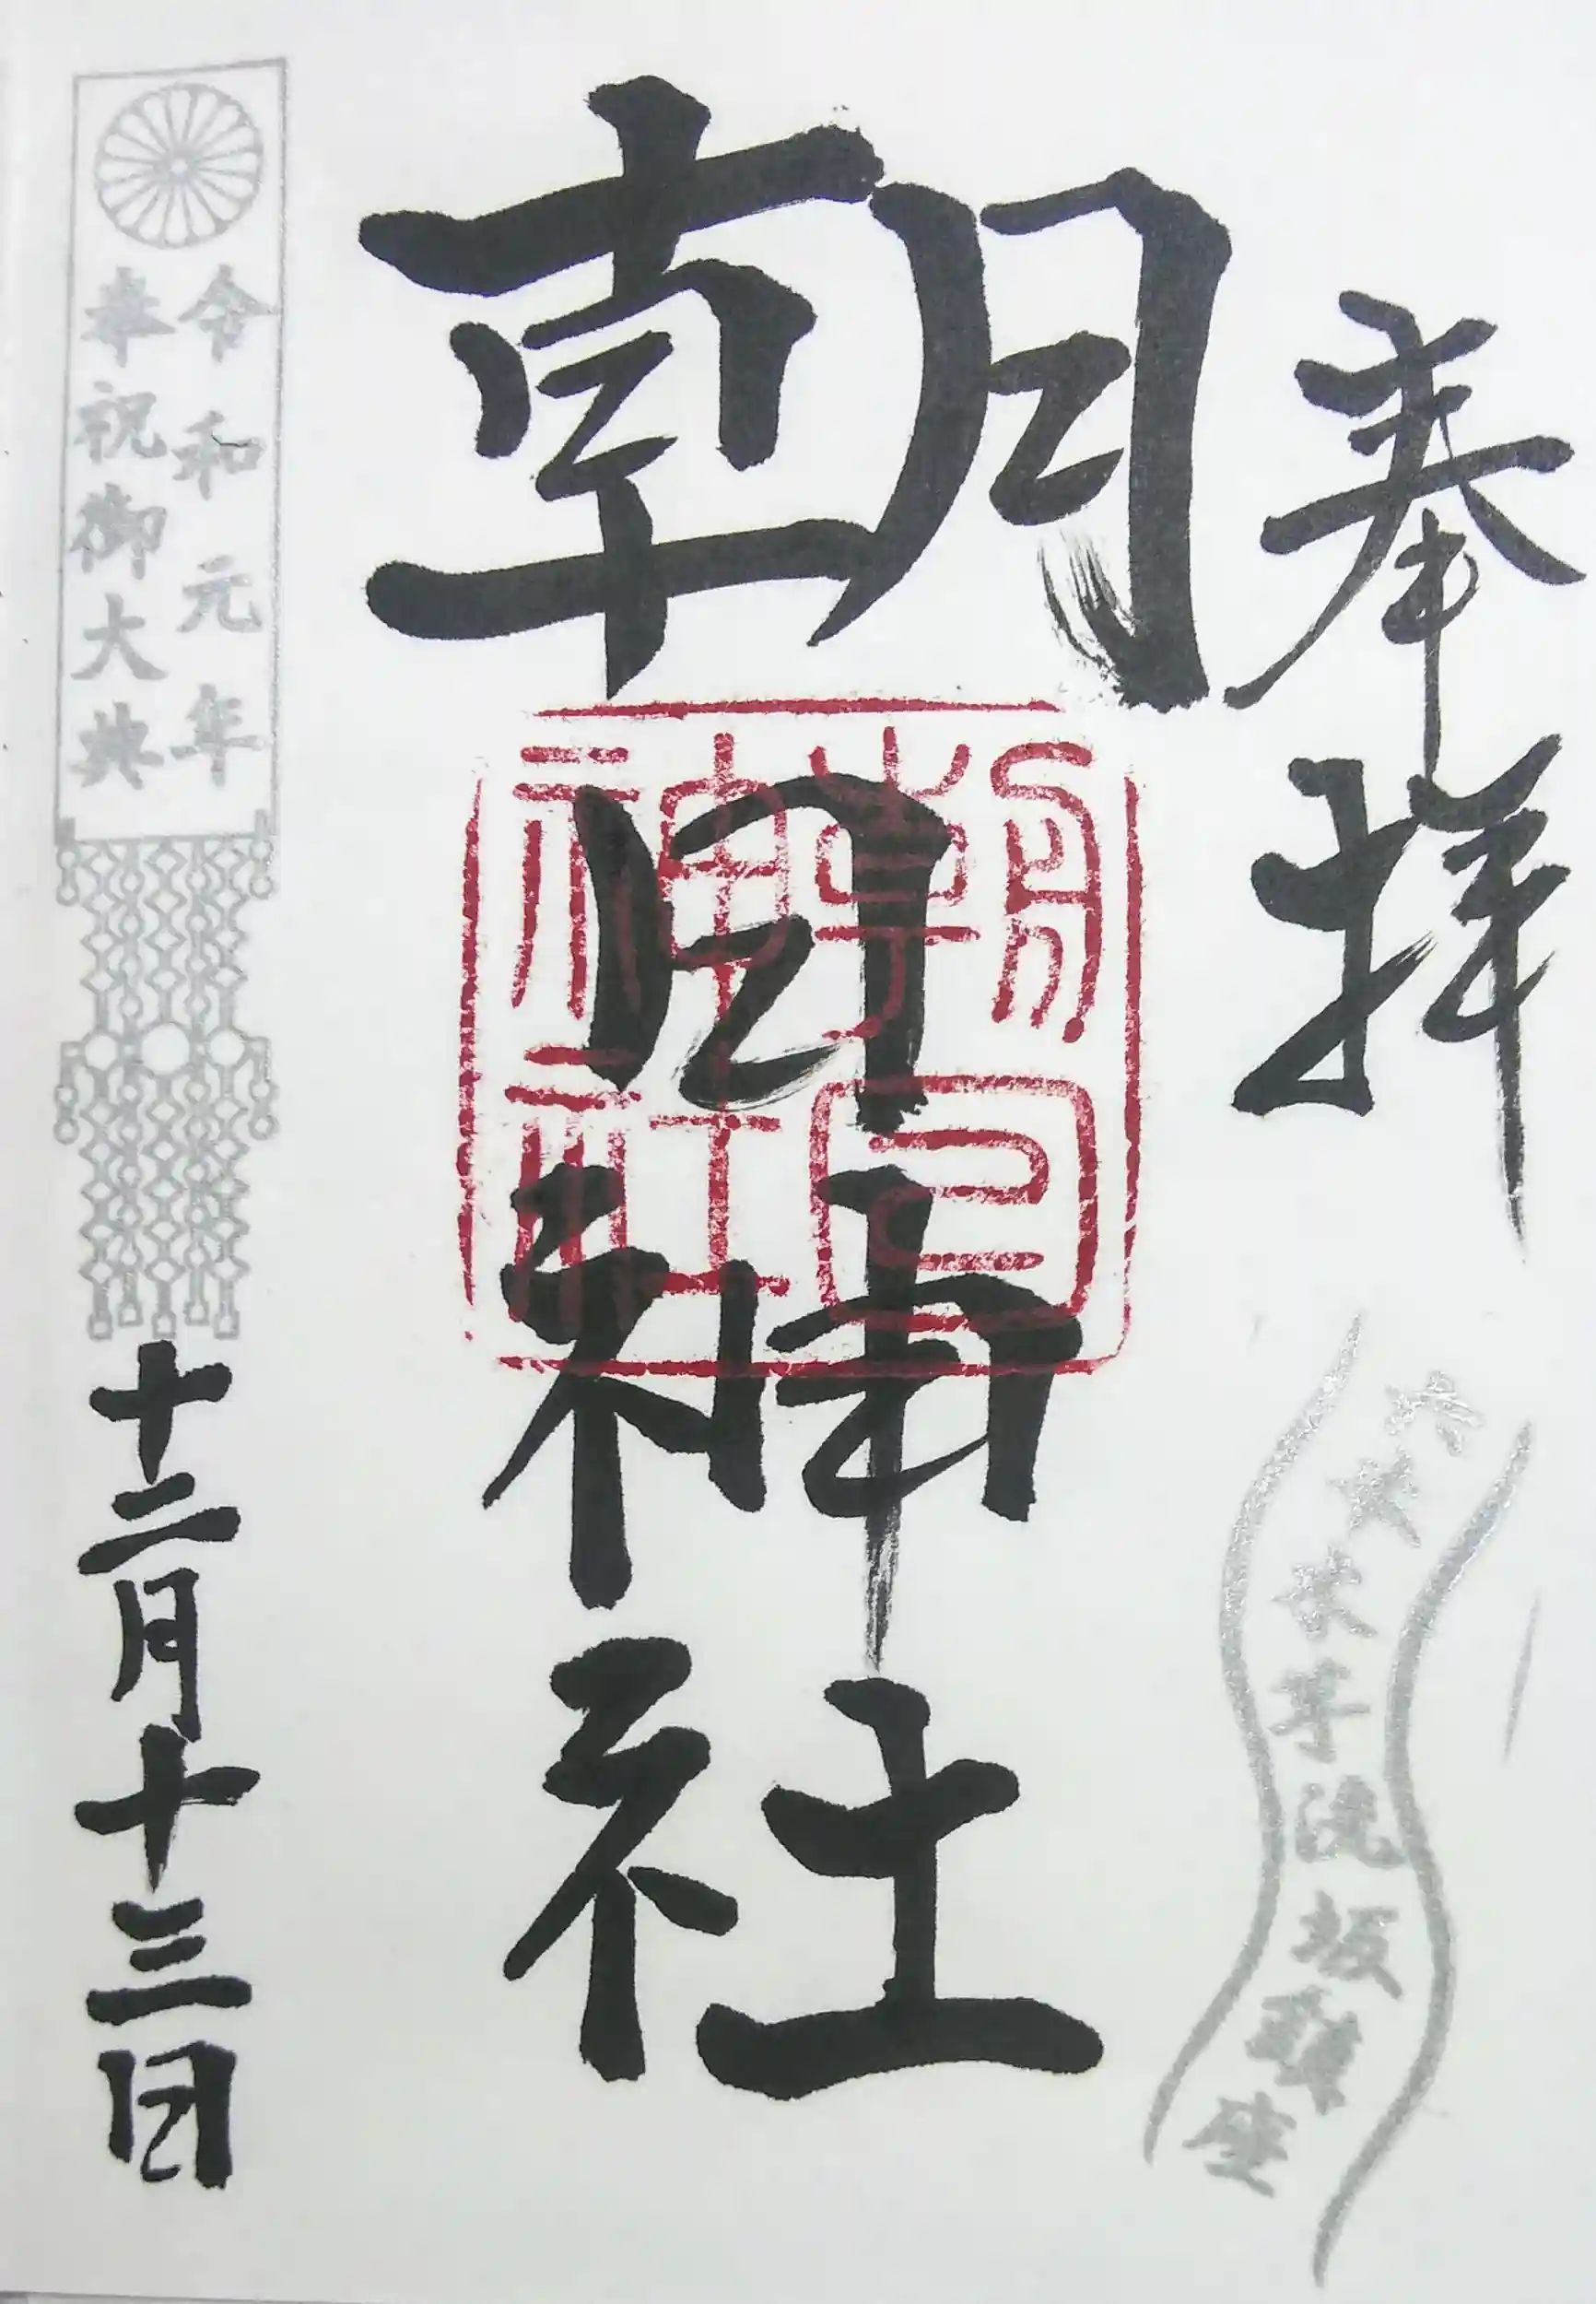 奉拝
六本木芋洗坂頭鎮座
朝日神社
朝日
神社
令和元年
奉祝御大典
十二月十三日